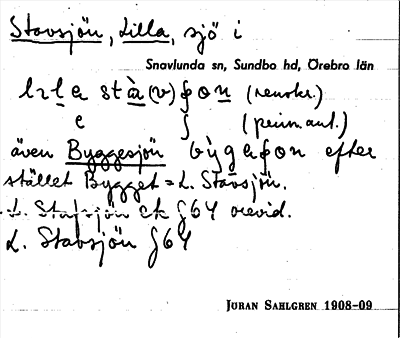 Stavsjön, Lilla, sjö i
Snavlunda sn, Sundbo hd, Örebro län
(renskr.)
(prim.ant.)
även Byggesjön efter
stället Bygget = L. Stavsjön.
L. Stafsjön ek §64 orevid.
L. Stavsjön §64
JÖRAN SAHLGREN 1908-09